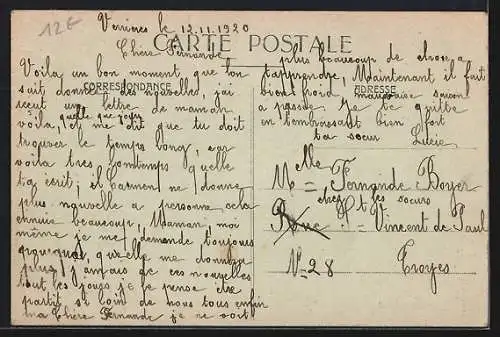 12€
Verrières le 12.11.1920
Chère Fernande
CARTE POSTALE
CORRESPONDANCE
ADRESSE
Voila un bon moment que l'on
sait donner de nouvelles, j'ai
reçut une lettre de maman
voila, quelque jours
et me dit que tu doit
trouver le temps long, car
voila tres lomtemps qu'elle
ta écrit, et Carmen ne donne
plus nouvelle a personne cela
ennuie beaucoup, Maman, moi
même je me demande toujours
qu'elle me donne
plus jamais de ces nouvelles
tout les jours je pense être
partit si loin de nous tous enfin
ma Chère Fernande je ne voit
plus beaucoup de chose a
t'apprendre, Maintenant il fait
bien froid, mauvaise saison
a passée. Je te quitte
en t'embrassant bien fort
ta sœur
Lucie
Melle
M = Fernande Boyer
chez les sœurs
Rue St = Vincent de Paul
N = 28
Troyes